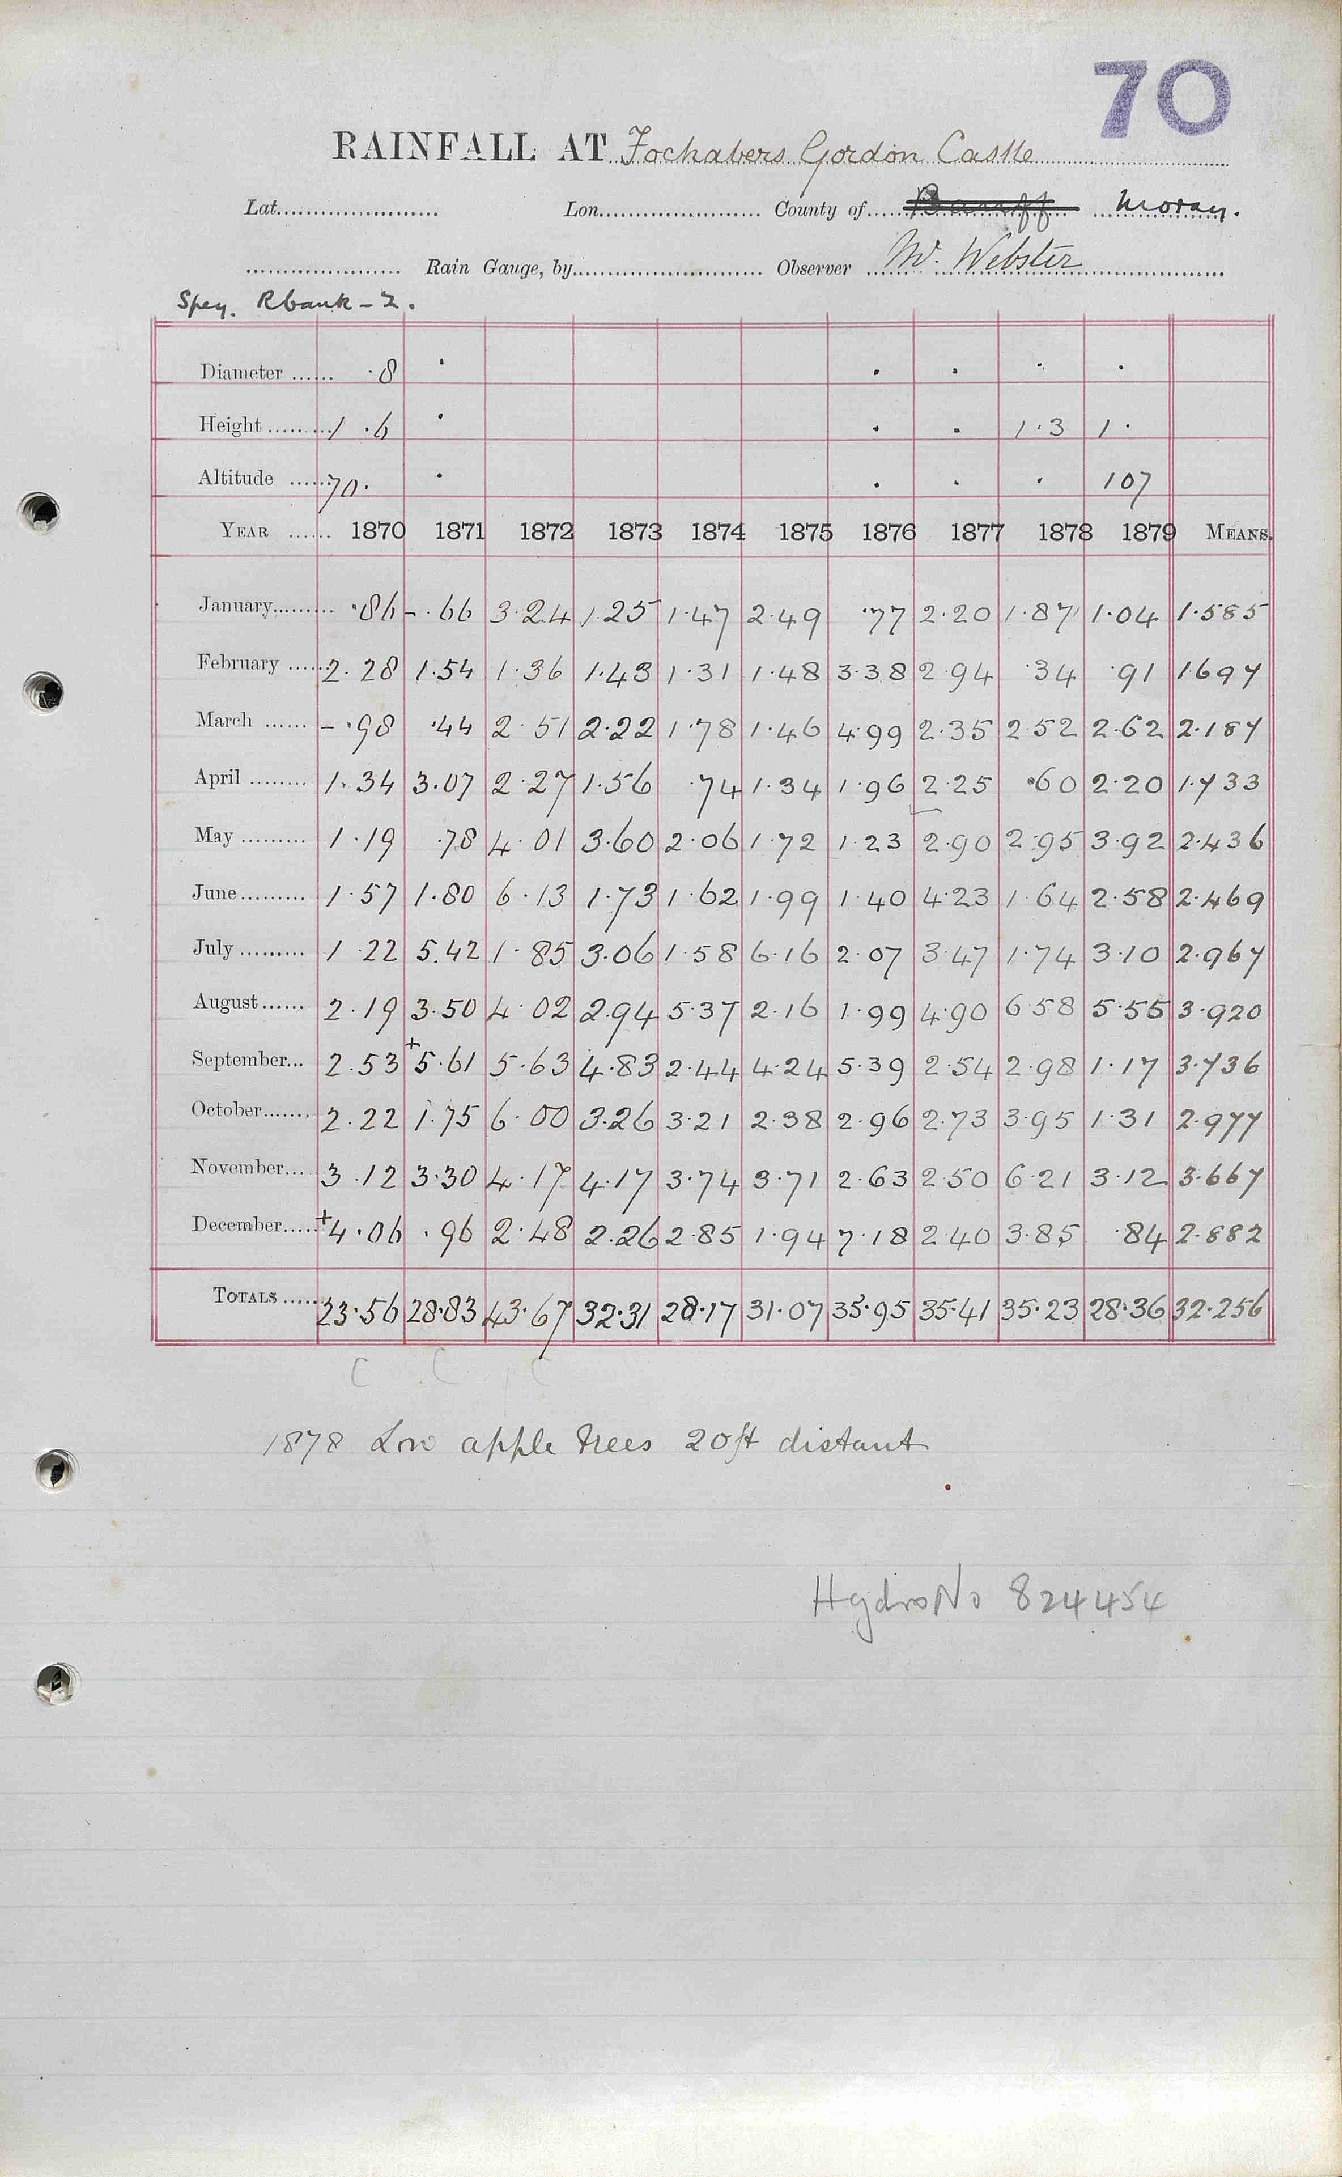 70
RAINFALL AT Fochabers Gordon Castle
Lat. Lon. County of Banff Moray.
Rain Gauge, by Observer Mr. Webster
Spey. R bank - 2.
Diameter ...... ·8 · · · · ·
Height ......... 1 .6 · · · 1·3 1·
Altitude ...... 70. · · · · 107
YEAR ...... 1870 1871 1872 1873 1874 1875 1876 1877 1878 1879 MEANS.
January......... ·86 - .66 3·24 1·25 1·47 2·49 ·77 2·20 1·87 1·04 1·585
February ...... 2.28 1.54 1·36 1·43 1·31 1·48 3·38 2·94 ·34 ·91 1697
March ...... - ·98 ·44 2·51 2·22 1·78 1·46 4·99 2·35 2·52 2·62 2·187
April ......... 1.34 3.07 2·27 1·56 ·74 1·34 1·96 2·25 ·60 2·20 1·733
May ......... 1·19 ·78 4·01 3·60 2·06 1·72 1·23 2·90 2·95 3·92 2·436
June......... 1·57 1·80 6·13 1·73 1·62 1·99 1·40 4·23 1·64 2·58 2·469
July ......... 1 22 5.42 1·85 3·06 1·58 6·16 2·07 3·47 1·74 3·10 2·967
August...... 2·19 3·50 4·02 2·94 5·37 2·16 1·99 4·90 6·58 5·55 3·920
September... 2.53 +5·61 5·63 4·83 2·44 4·24 5·39 2·54 2·98 1·17 3·736
October....... 2·22 1·75 6·00 3·26 3·21 2·38 2·96 2·73 3·95 1·31 2·977
November.... 3·12 3·30 4·17 4·17 3·74 3·71 2·63 2·50 6·21 3·12 3·667
December..... +4·06 .96 2·48 2·26 2·85 1·94 7·18 2·40 3·85 ·84 2·882
TOTALS ...... 23·56 28·83 43·67 32·31 28·17 31·07 35·95 35·41 35·23 28·36 32·256
C C C
1878 Low apple trees 20ft distant
HydroNo 824454